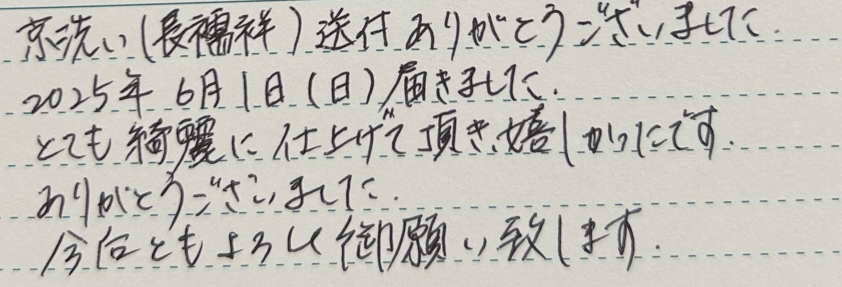 京洗い(長襦袢)送付ありがとうございました.
2025年 6月1日(日)届きました.
とても綺麗に仕上げて頂き、嬉しかったです.
ありがとうございました.
今后ともよろしく御願い致します.